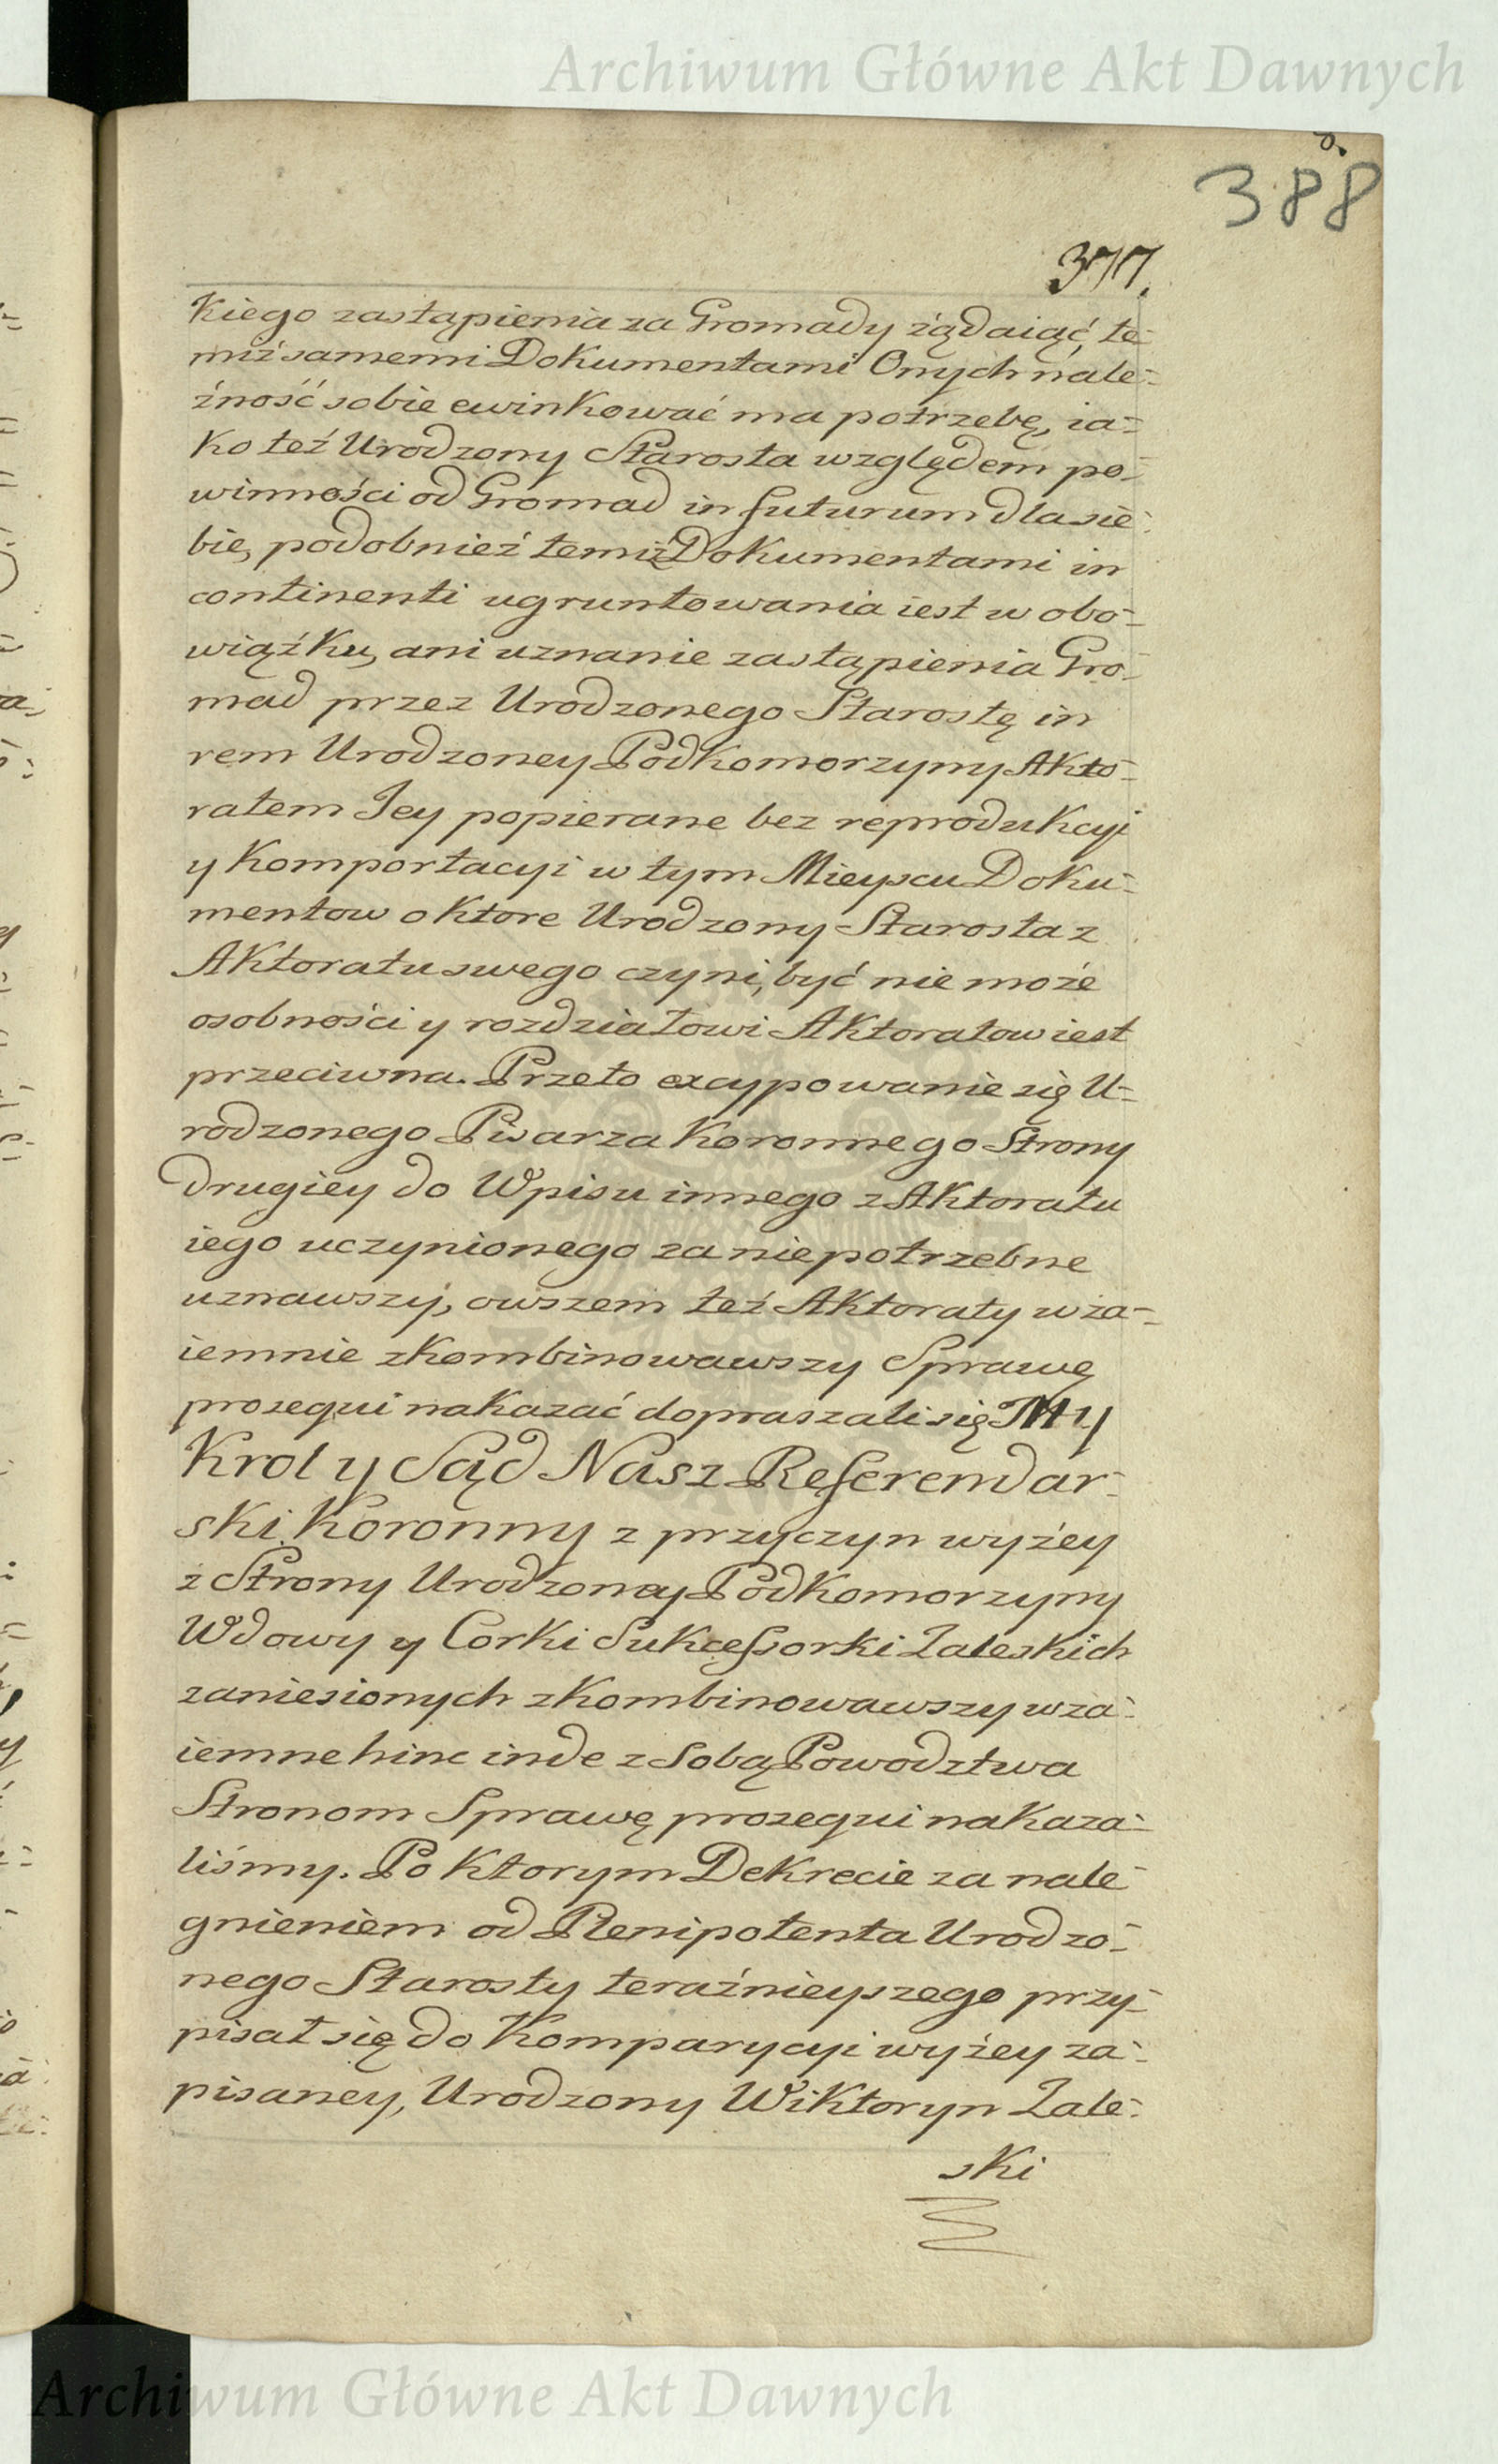 Archiwum Główne Akt Dawnych
388
377.
kiego zastąpienia za Gromady żądaiąc, te-
miż samemi Dokumentami Onych nale-
żność sobie ewinkować ma potrzebę, ia-
ko też Urodzony Starosta względem po-
winności od Gromad in futurum dla sie-
bie, podobnież temiż Dokumentami in
continenti ugruntowania iest w obo-
wiąźku, ani uznanie zastąpienia Gro-
mad przez Urodzonego Starostę in
rem Urodzoney Podkomorzyny Akto-
ratem Jey popierane bez reprodukcyi
y komportacyi w tym Mieyscu Doku-
mentow o ktore Urodzony Starosta z
Aktoratu swego czyni, być nie może
osobności y rozdziałowi Aktoratow iest
przeciwna. Przeto excypowanie się U-
rodzonego Pisarza Koronnego Strony
drugiey do Wpisu innego z Aktoratu
iego uczynionego za niepotrzebne
uznawszy, owszem też Aktoraty wza-
iemnie zkombinowawszy Sprawę
prosequi nakazać dopraszali się My
Krol y Sąd Nasz Referendar-
ski Koronny z przyczyn wyżey
z Strony Urodzoney Podkomorzyny
Wdowy y Corki Sukcessorki Zaleskich
zaniesionych zkombinowawszy wza-
iemne hinc inde z Sobą Powodztwa
Stronom Sprawę prosequi nakaza-
liśmy. Po ktorym Dekrecie za nale-
gnieniem od Plenipotenta Urodzo-
nego Starosty teraźnieyszego przy-
pisał się do Komparycyi wyżey za-
pisaney, Urodzony Wiktoryn Zale-
ski
Archiwum Główne Akt Dawnych